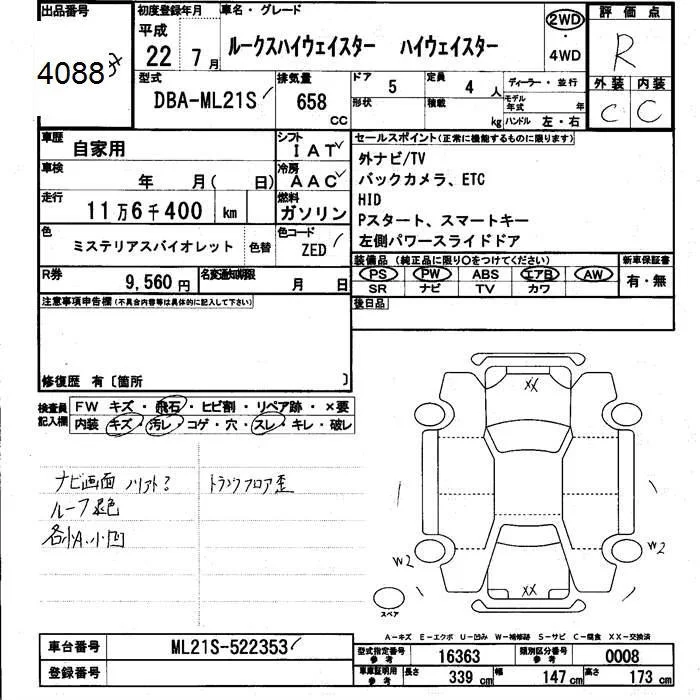 出品番号 初度登録年月 車名・グレード 2WD 評価点
4088
平成
22 7月 ルークスハイウェイスター ハイウェイスター ・ 4WD R
型式 排気量 ドア 5 定員 4人 ディーラー・並行 外装 内装
DBA-ML21S 658 CC 形状 積載 kg モデル年式 年 C C
ハンドル 左・右
車歴 自家用 シフト IAT セールスポイント(正常に機能するものに限ります)
車検 年 月( 日) 冷房 AAC 外ナビ/TV
バックカメラ、ETC
走行 11万6千400 km 燃料 ガソリン HID
Pスタート、スマートキー
色 ミステリアスバイオレット 色替 色コード ZED 左側パワースライドドア
装備品(純正品に限り○をつけてください) 新車保証書
R券 9,560円 名変通知期限 月 日 PS PW ABS エアB AW 有・無
SR ナビ TV カワ
注意事項申告欄(不具合内容等は具体的に記入して下さい) 後日品
修復歴 有〔箇所 〕
XX
検査員 FW キズ・飛石・ヒビ割・リペア跡・×要
記入欄 内装 キズ・汚レ・コゲ・穴・スレ・キレ・破レ
ナビ画面 ノリアト? トランクフロア歪
ルーフ退色
各小A.小凹
W2 W2
XX
スペア
A-キズ E-エクボ U-凹み W-補修跡 S-サビ C-腐食 XX-交換済
車台番号 ML21S-522353 型式指定番号 参考 16363 類別区分番号 参考 0008
登録番号 車庫証明用 参考 長さ 339cm 幅 147cm 高さ 173cm